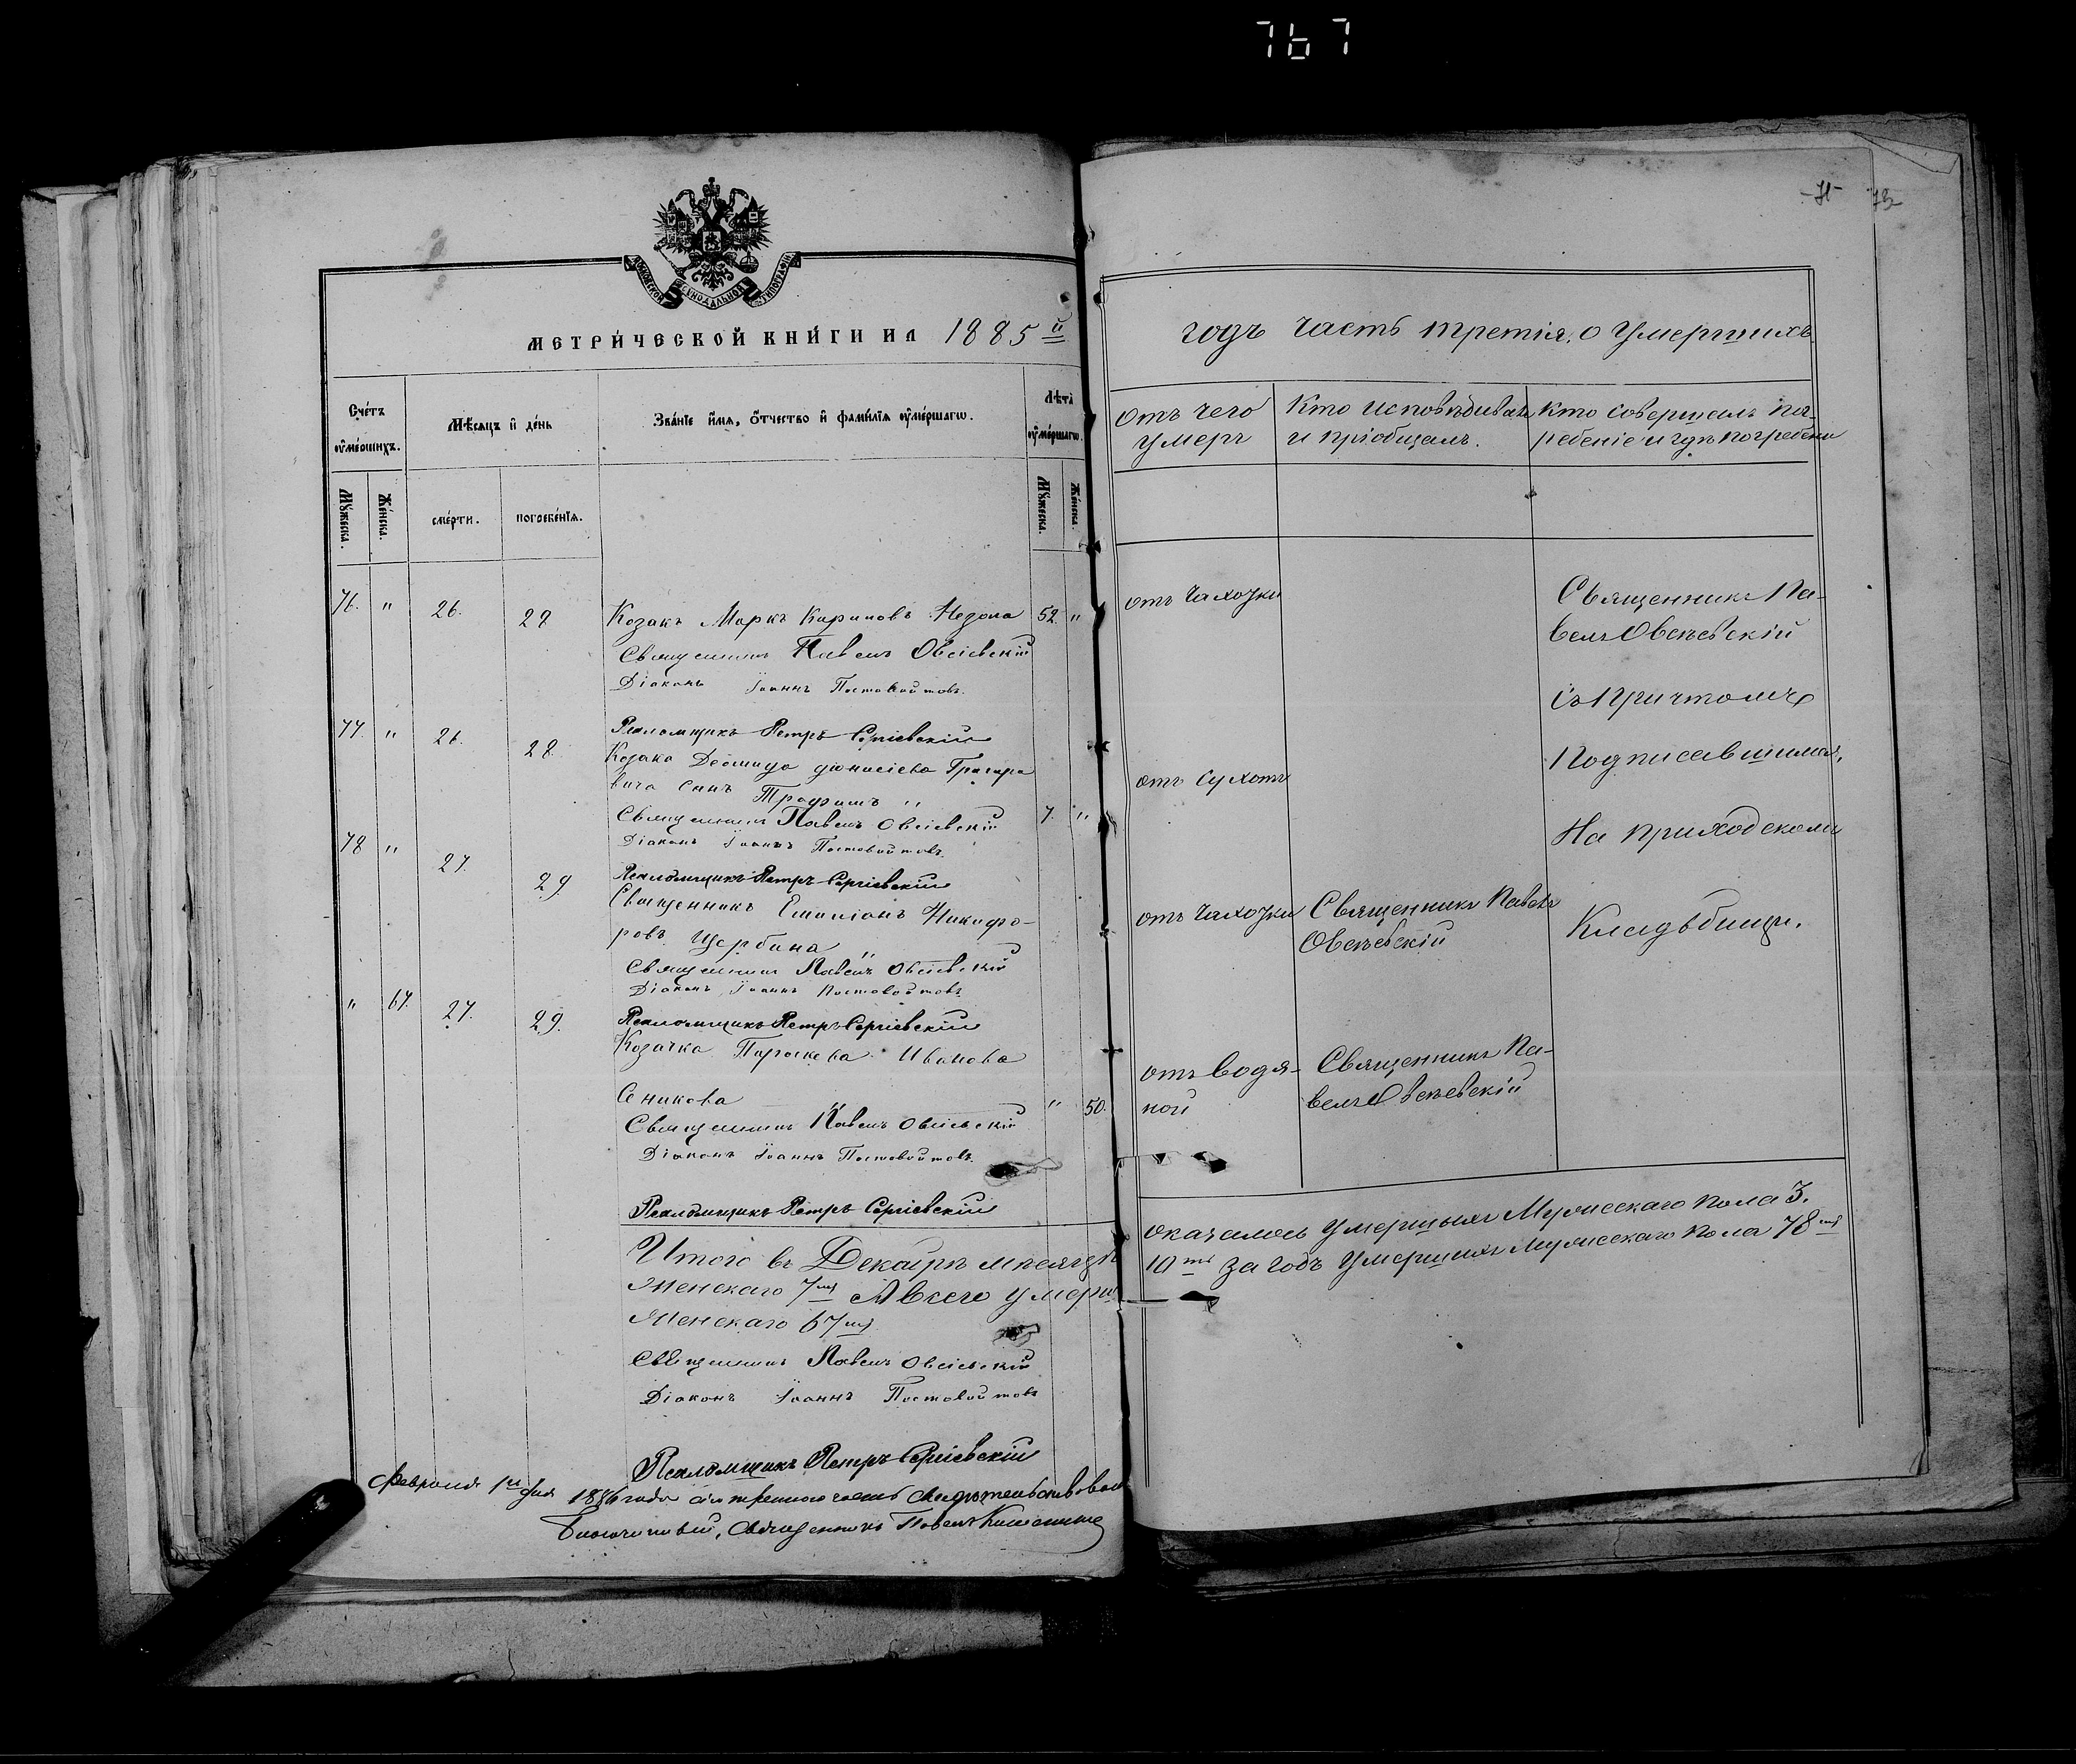 767
-71- 73
МОСКОВСКОЙ СѴНОДАЛЬНОЙ ТИПОГРАФІИ
МЕТРИЧЕСКОЙ КНИГИ НА 1885й
Счетъ ѹмершихъ.
Мѣсяцъ и день
Званіе имя, отчество и фамилія ѹмершагѡ.
Лѣта ѹмершагѡ.
Мѹжеска.
Женска.
смерти.
погребенія.
Мѹжеска.
Женска.
76. " 26. 28 Козакъ Маркъ Кириловъ 52 "
Священникъ Павелъ Овсіевскій
Діаконъ Іоаннъ Постовойтовъ.
Псаломщикъ Петръ Сергіевскій
77. " 26. 28 Козака Діомида Діонисіева Григоро
вича сынъ Трофимъ " 7. "
Священникъ Павелъ Овсіевскій
Діаконъ Іоаннъ Постовойтовъ.
Псаломщикъ Петръ Сергіевскій
78 " 27. 29 Священникъ Емиліанъ Никифо-
ровъ Щербина "
Священникъ Павелъ Овсіевскій
Діаконъ Іоаннъ Постовойтовъ
Псаломщикъ Петръ Сергіевскій
" 67. 27. 29. Козачка Параскева Иванова
Сникова " 50.
Священникъ Павелъ Овсіевскій
Діаконъ Іоаннъ Постовойтовъ.
Псаломщикъ Петръ Сергіевскій
Итого въ Декабрѣ мѣсяцѣ
Женскаго 7мь А всего умерш
Женскаго 67мь
Священникъ Павелъ Овсіевскій
Діаконъ Іоаннъ Постовойтовъ
Псаломщикъ Петръ Сергіевскій
Февраля 1го дня 1886 года сію часть свидѣтельствовалъ
Благочинный, Священникъ Павелъ
годъ часть третія, о умершихъ
отъ чего
умеръ
Кто исповѣдывалъ
и пріобщалъ.
Кто совершалъ пог-
ребеніе и гдѣ погребены
отъ чахотки
Священникъ Па-
велъ Овсѣевскій
съ Причтомъ
Подписавшимся,
отъ сухотъ
На приходскомъ
отъ чахотки Священникъ Павелъ
Овсѣевскій
Кладъбищи.
отъ водя- Священникъ Па-
ной велъ Овсѣевскій
оказалось умершихъ Мужескаго пола 3.
10ть за годъ умершихъ Мужескаго пола 78мь